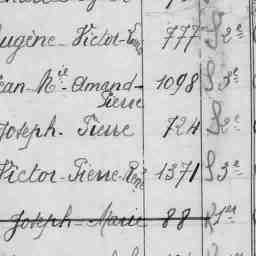 Eugène - Victor - Louis 777 2e
Jean - Mie - Amand - Pierre 1098 3e
Joseph - Pierre 724 2e
Victor - Pierre - René 1371 3e
Joseph - Marie 88 1er